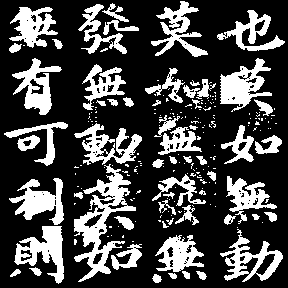 也莫如無動
莫如無發無
發無動莫如
無有可利則